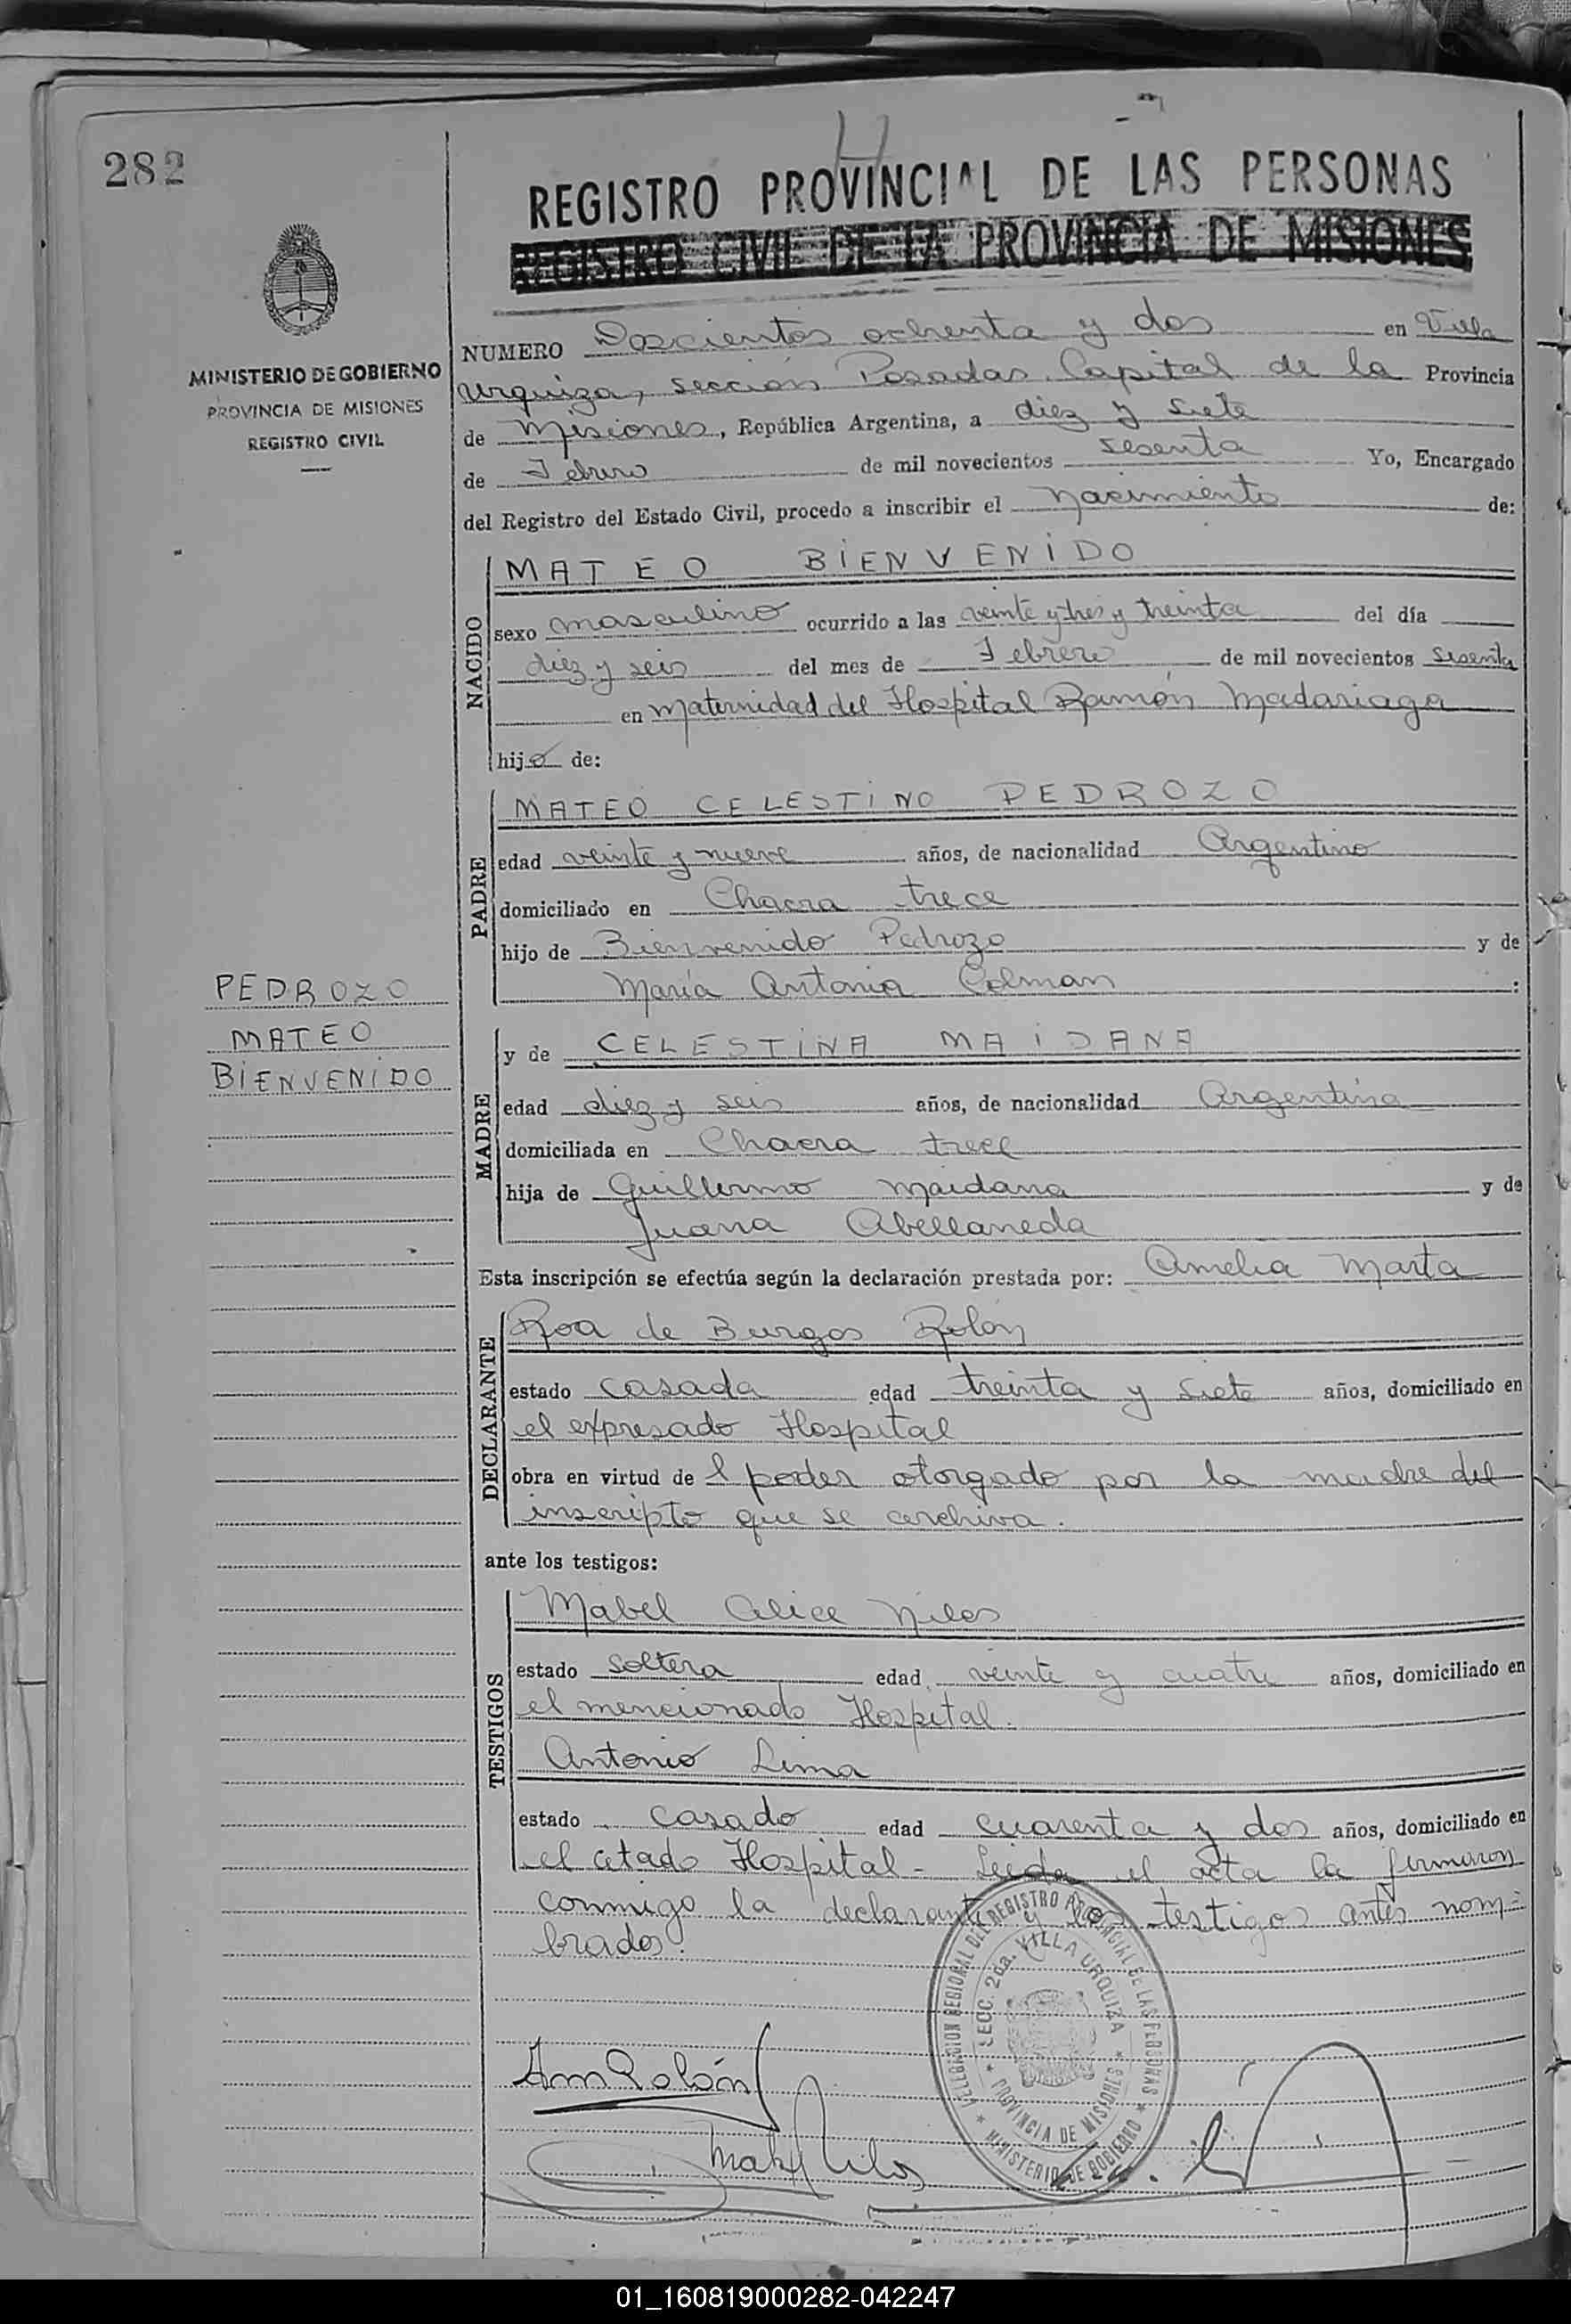 282
REGISTRO PROVINCIAL DE LAS PERSONAS
REGISTRO CIVIL DE LA PROVINCIA DE MISIONES
MINISTERIO DE GOBIERNO
PROVINCIA DE MISIONES
REGISTRO CIVIL
NUMERO Doscientos ochenta y dos en Villa
Urquiza, sección Posadas Capital de la Provincia
de Misiones, República Argentina, a diez y siete
de Febrero de mil novecientos sesenta Yo, Encargado
del Registro del Estado Civil, procedo a inscribir el Nacimiento de:
NACIDO
MATEO BIENVENIDO
sexo masculino ocurrido a las veinte y tres y treinta del día
diez y seis del mes de Febrero de mil novecientos sesenta
en Maternidad del Hospital Ramón Madariaga
hijo de:
PADRE
MATEO CELESTINO PEDROZO
edad veinte y nueve años, de nacionalidad Argentino
domiciliado en Chacra trece
hijo de Bienvenido Pedrozo y de
María Antonia Colman :
PEDROZO
MATEO
BIENVENIDO
MADRE
y de CELESTINA MAIDANA
edad diez y seis años, de nacionalidad Argentina
domiciliada en Chacra trece
hija de Guillermo Maidana y de
Juana Abellaneda
Esta inscripción se efectúa según la declaración prestada por: Amelia Marta
DECLARANTE
Roa de Burgos Rolón
estado casada edad treinta y siete años, domiciliado en
el expresado Hospital
obra en virtud de l poder otorgado por la madre del
inscripto que se archiva.
ante los testigos:
TESTIGOS
Mabel Alice Niles
estado soltera edad veinte y cuatro años, domiciliado en
el mencionado Hospital.
Antonio Lima
estado casado edad cuarenta y dos años, domiciliado en
el citado Hospital - Leida el acta la firmaron
conmigo la declarante y los testigos antes nom-
brados.
DELEGACION REGIONAL DEL REGISTRO PROVINCIAL DE LAS PERSONAS
SECC. 2da. VILLA URQUIZA
PROVINCIA DE MISIONES
MINISTERIO DE GOBIERNO
Rolón
01_160819000282-042247